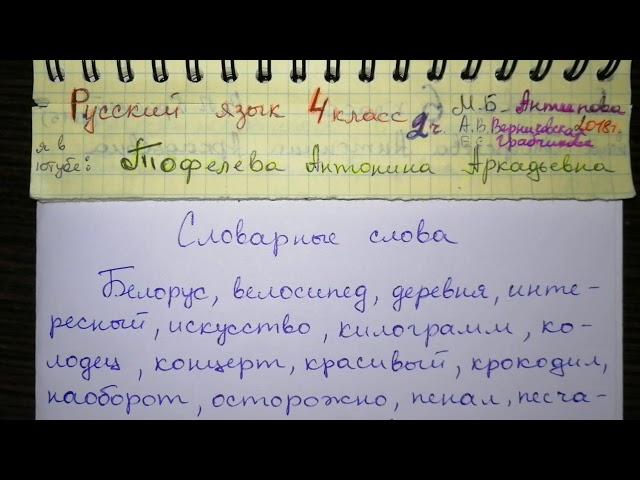 Русский язык 4 класс 2ч. М.Б. Антипова
А.В. Верниковская 2018г.
Е.С. Грабчикова
я в ютубе: Тофелева Антонина Аркадьевна
Словарные слова
Белорус, велосипед, деревня, инте-
ресный, искусство, килограмм, ко-
лодец, концерт, красивый, крокодил,
наоборот, осторожно, пенал, песча-